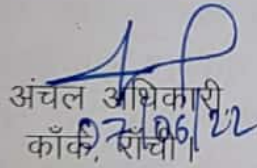 अंचल अधिकारी,
काँके, राँची।
07/06/22